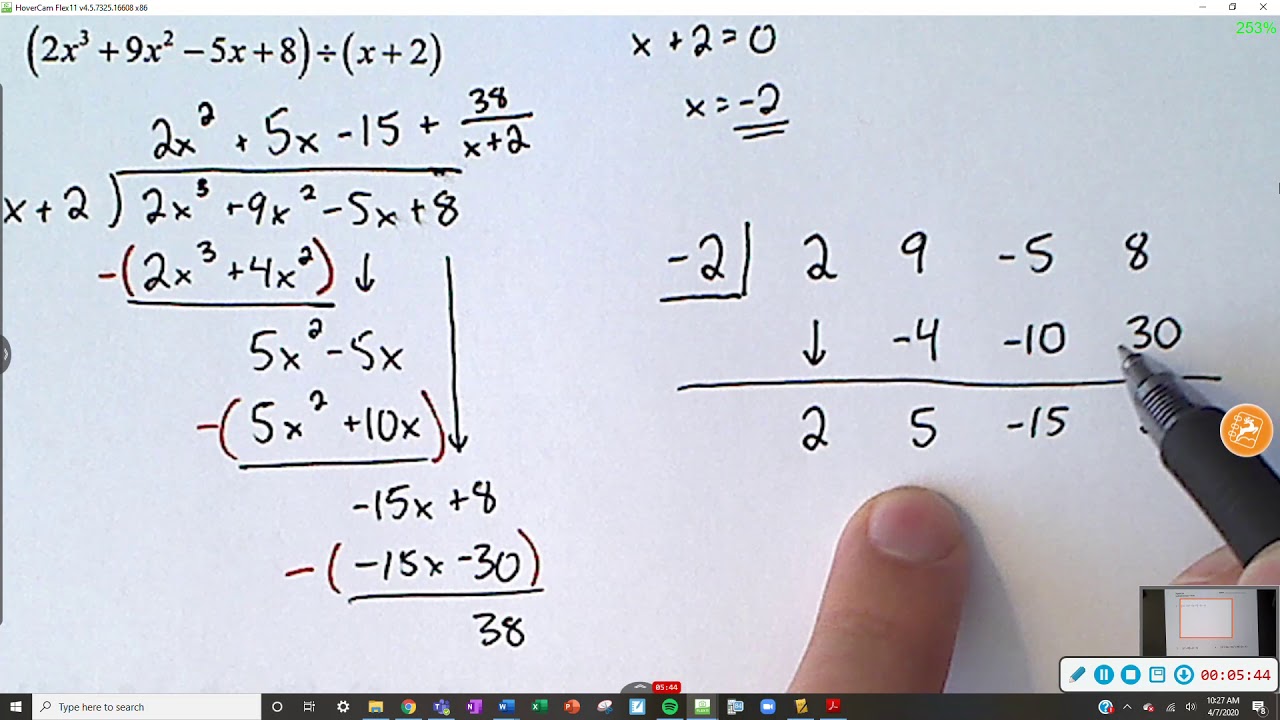 HoverCam Flex11 v4.5.7325.16608 x86
253%
(2x³ + 9x² − 5x + 8) ÷ (x + 2)
x + 2 = 0
x = -2
2x² + 5x - 15 + 38/(x+2)
x + 2 ) 2x³ + 9x² - 5x + 8
-(2x³ + 4x²) ↓
5x² - 5x
-(5x² + 10x)
-15x + 8
-(-15x - 30)
38
-2 | 2 9 -5 8
↓ -4 -10 30
2 5 -15
00:05:44
05:44
Type here to search
10:27 AM
4/7/2020